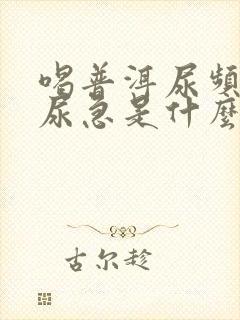 喝普洱尿頻
尿急是什麼
古尔趁